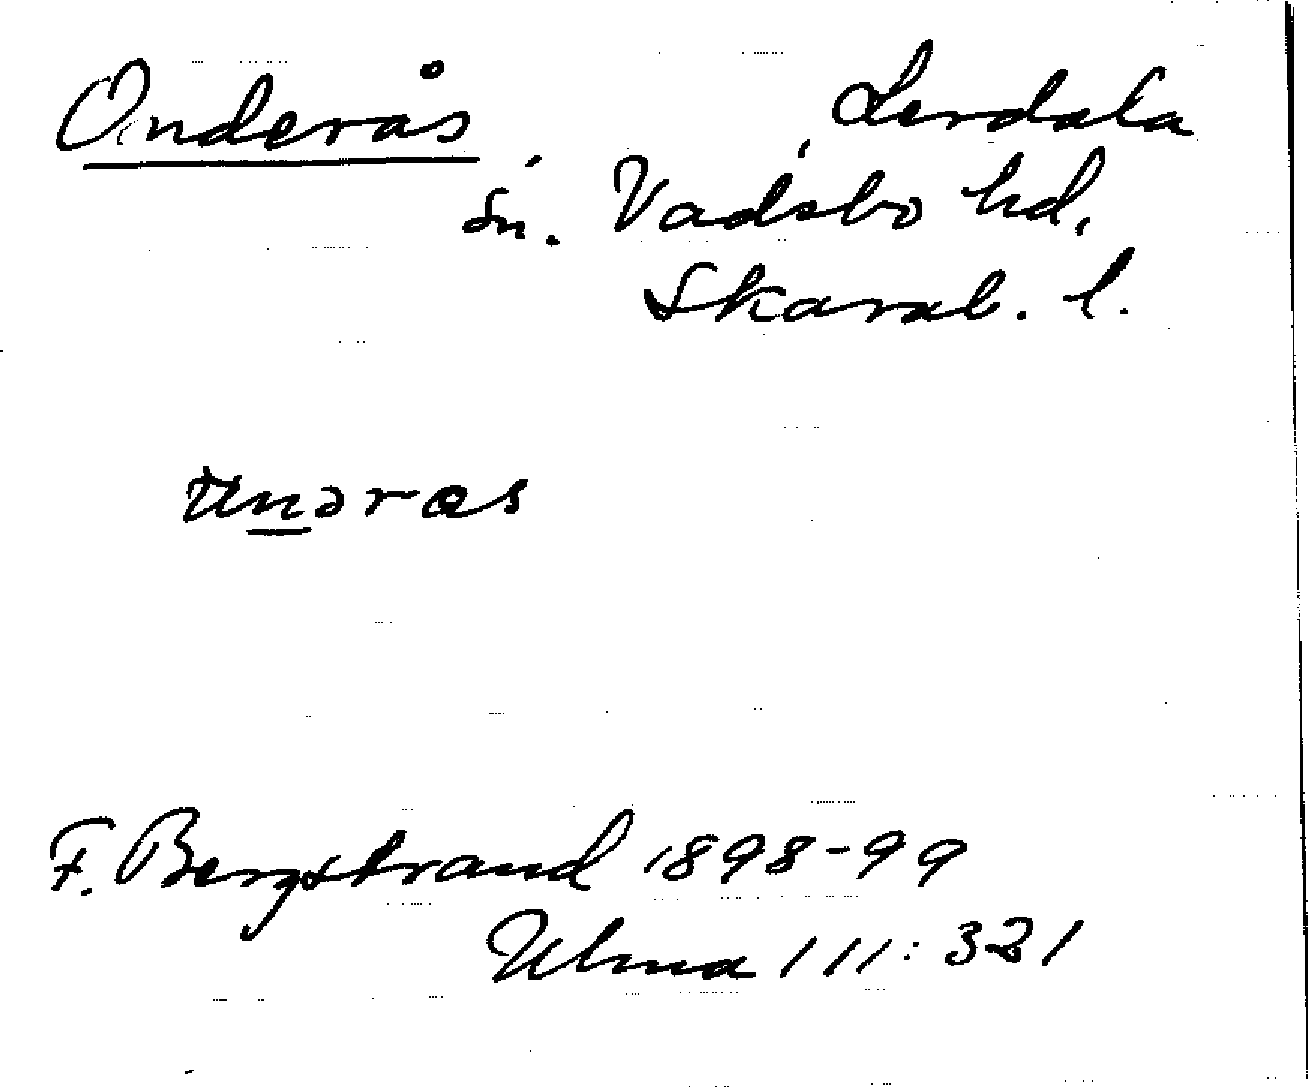 Onderås Lerdala
sn. Vadsbo hd.
Skarab. l.
F. Bergstrand 1898-99
Ulma 111:321